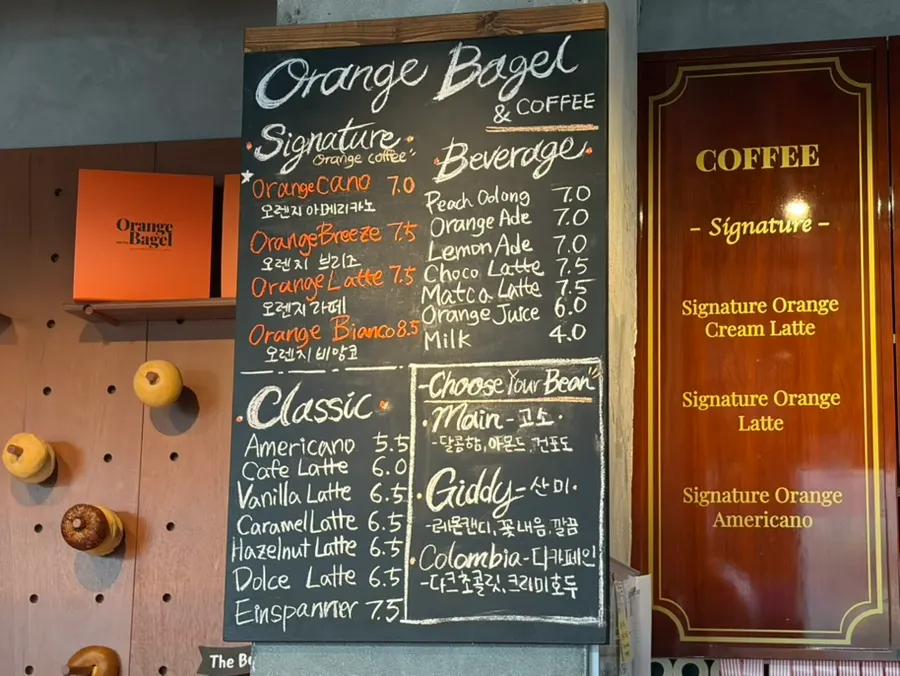 Orange Bagel
& COFFEE
Signature
Orange coffee"
OrangeCano 7.0
오렌지 아메리카노
OrangeBreeze 7.5
오렌지 브리즈
Orange Latte 7.5
오렌지 라떼
Orange Bianco 8.5
오렌지 비앙코
Beverage
Peach Oolong 7.0
Orange Ade 7.0
Lemon Ade 7.0
Choco Latte 7.5
Matca Latte 7.5
Orange Juice 6.0
Milk 4.0
Classic
Americano 5.5
Cafe Latte 6.0
Vanilla Latte 6.5
Caramel Latte 6.5
Hazelnut Latte 6.5
Dolce Latte 6.5
Einspanner 7.5
-Choose Your Bean"
Main - 고소
-달콤함, 아몬드, 건포도
Giddy - 산미
-레몬캔디, 꽃내음, 깔끔
Colombia - 디카페인
-다크초콜릿, 크리미호두
Orange
Bagel
COFFEE
- Signature -
Signature Orange
Cream Latte
Signature Orange
Latte
Signature Orange
Americano
The